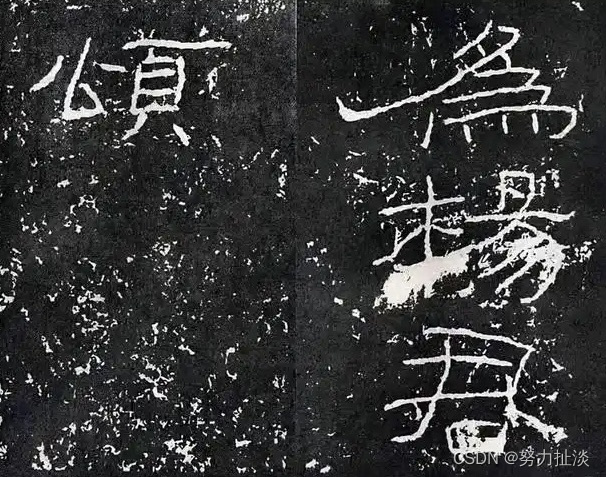 為楊君
頌
CSDN @努力扯淡